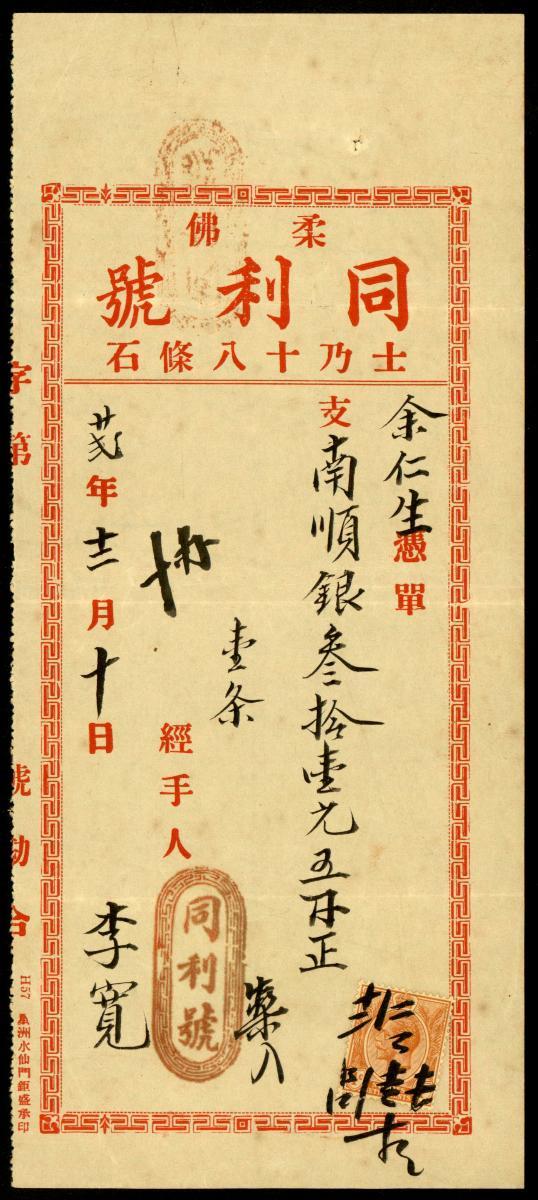 柔佛
同利號
士乃十八條石
余仁生憑單
支南順銀叁拾壹元五𠔃正
壹条
藥入
經手人
同利號
李寬
廿弍年十二月十日
字第 號勘合
H57 星洲水仙門鉅盛承印